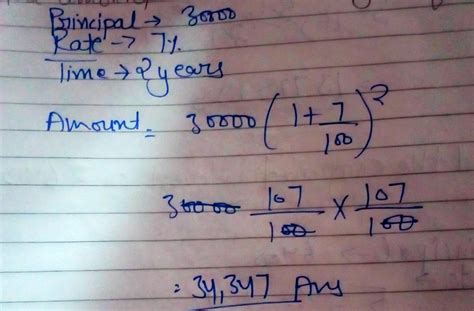 Principal → 30000
Rate → 7%
Time → 2 years
Amount = 30000 (1 + 7/100)²
30000 107/100 × 107/100
= 34,347 Ans